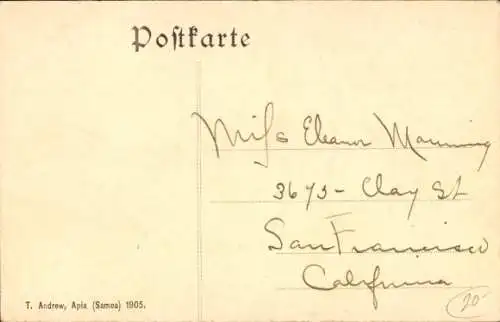 Postkarte
Miss Eleanor Manning
3673 - Clay St
San Francisco
California
T. Andrew, Apia (Samoa) 1905.
20-